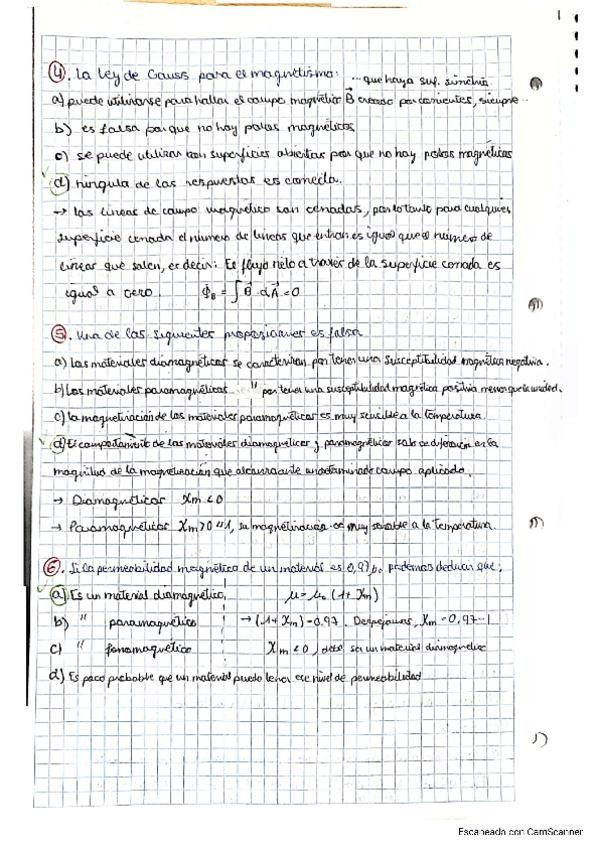 1
④. La Ley de Gauss para el magnetismo: ...que haya sup. simétria
a) puede utilizarse para hallar el campo magnético B⃗ creado por corrientes, siempre...
b) es falsa porque no hay polos magnéticos
c) se puede utilizar con superficies abiertas por que no hay polos magnéticos
d) ninguna de las respuestas es correcta.
→ Las líneas de campo magnético son cerradas, por lo tanto para cualquier
superficie cerrada el número de líneas que entran es igual que el número de
líneas que salen, es decir: El flujo neto a través de la superficie cerrada es
igual a cero. Φ_B = ∫ B⃗ · dA⃗ = 0
⑤. Una de las siguientes proposiciones es falsa
a) Los materiales diamagnéticos se caracterizan por tener una susceptibilidad magnética negativa.
b) Los materiales paramagnéticos " por tener una susceptibilidad magnética positiva menor que la unidad.
c) La magnetización de los materiales paramagnéticos es muy sensible a la temperatura.
d) El comportamiento de los materiales diamagnéticos y paramagnéticos solo se diferencia en la
magnitud de la magnetización que alcanza ante un determinado campo aplicado.
→ Diamagnéticos Xm < 0
→ Paramagnéticos Xm > 0 << 1, su magnetización es muy sensible a la temperatura.
⑥. Si la permeabilidad magnético de un material es 0,97 μ₀ podemos deducir que:
a) Es un material diamagnético, μ = μ₀ (1 + Xm)
b) " paramagnético → (1 + Xm) = 0,97. Despejamos, Xm = 0,97 - 1
c) " ferromagnético Xm < 0, debe ser un material diamagnético
d) Es poco probable que un material pueda tener ese nivel de permeabilidad
Escaneado con CamScanner